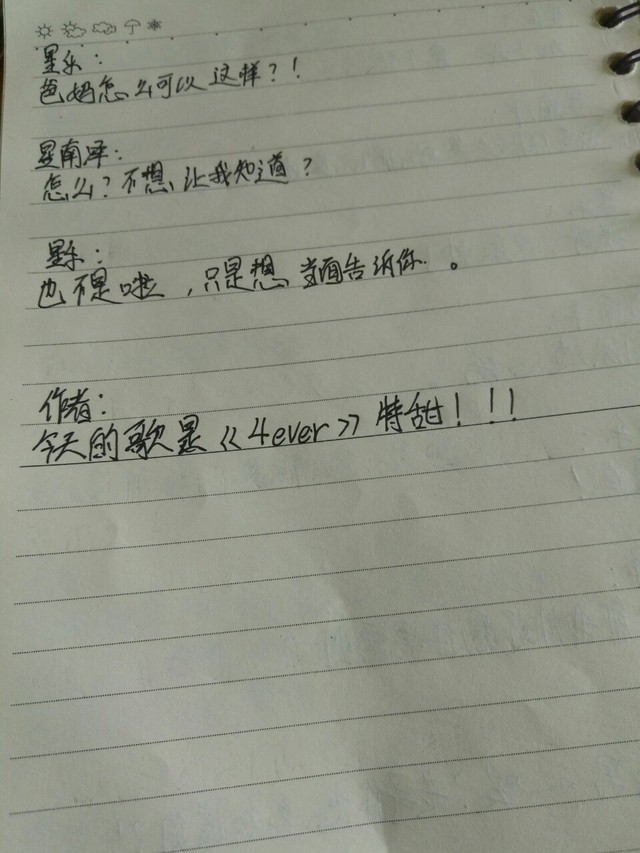 星乐：
爸妈怎么可以这样？！
星南泽：
怎么？不想让我知道？
星乐：
也不是啦，只是想当面告诉你。
作者：
今天的歌是《4ever》特甜！！！